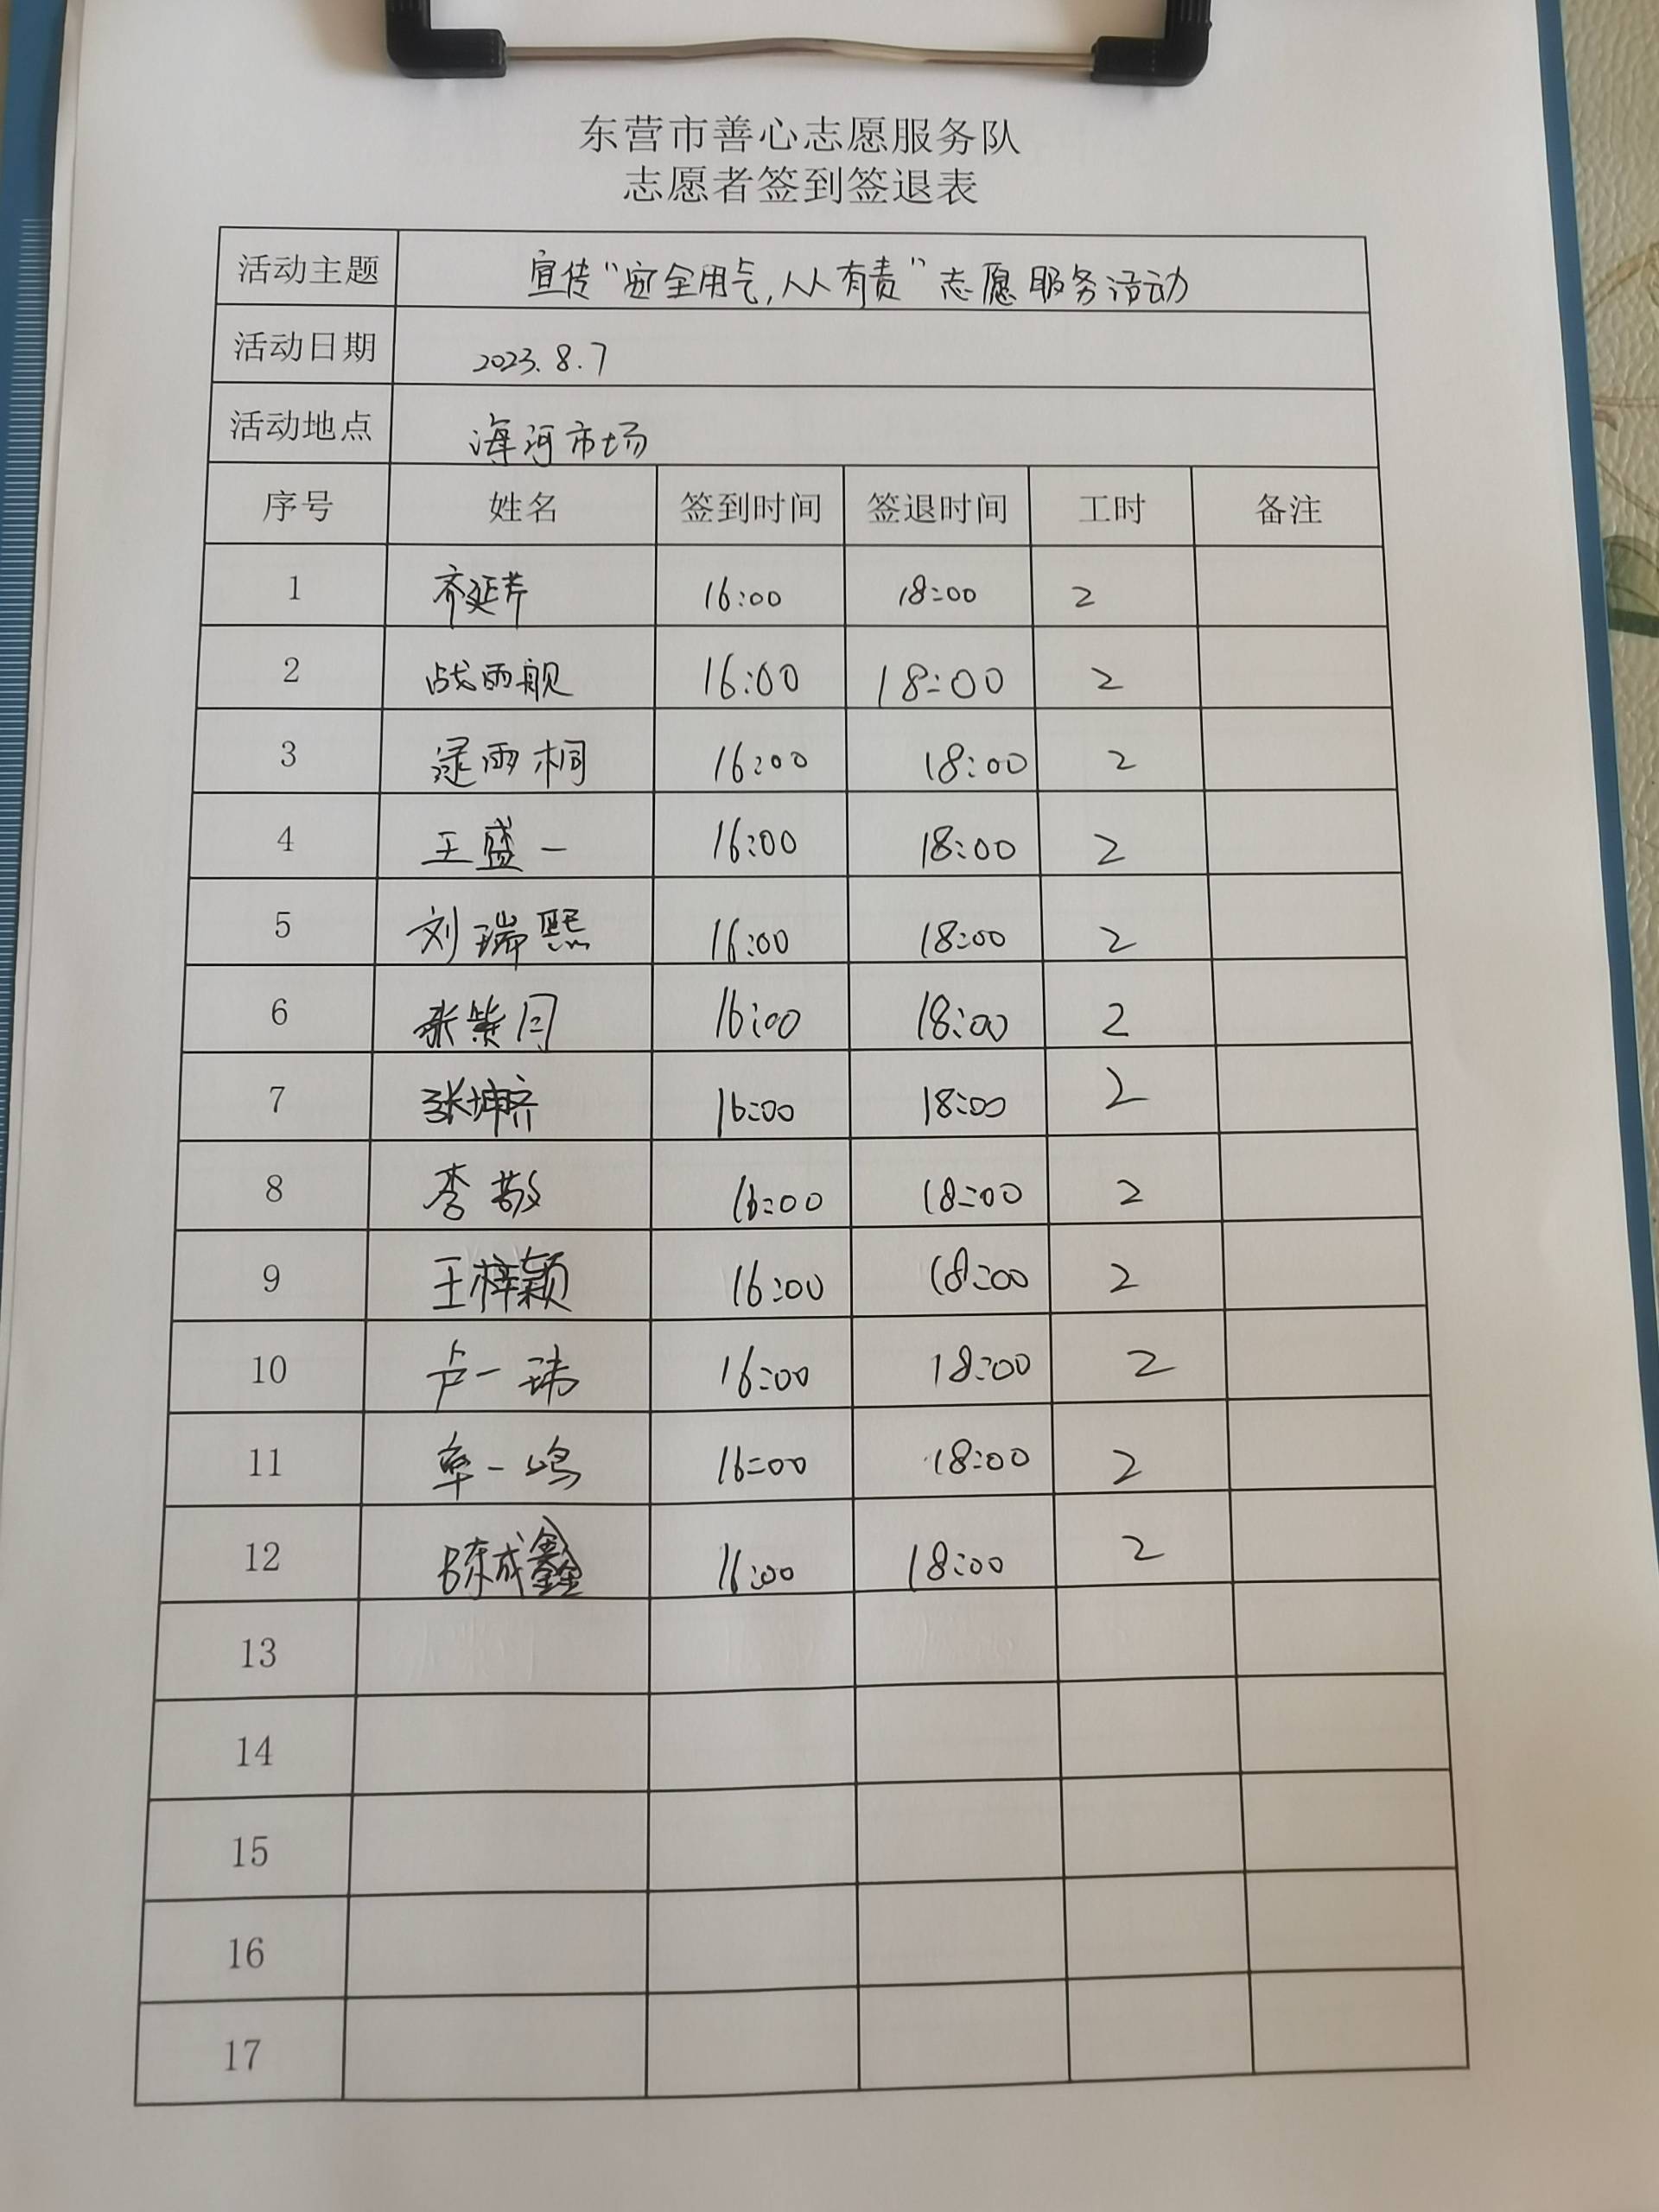 东营市善心志愿服务队
志愿者签到签退表
活动主题 宣传“安全用气,人人有责”志愿服务活动
活动日期 2023.8.7
活动地点 海河市场
序号 姓名 签到时间 签退时间 工时 备注
1 齐延芹 16:00 18:00 2
2 战雨舰 16:00 18:00 2
3 逯雨桐 16:00 18:00 2
4 王盛一 16:00 18:00 2
5 刘瑞熙 16:00 18:00 2
6 张紫月 16:00 18:00 2
7 张坤齐 16:00 18:00 2
8 李敬 16:00 18:00 2
9 王梓颖 16:00 18:00 2
10 卢一玮 16:00 18:00 2
11 一鸣 16:00 18:00 2
12 陈成鑫 16:00 18:00 2
13
14
15
16
17